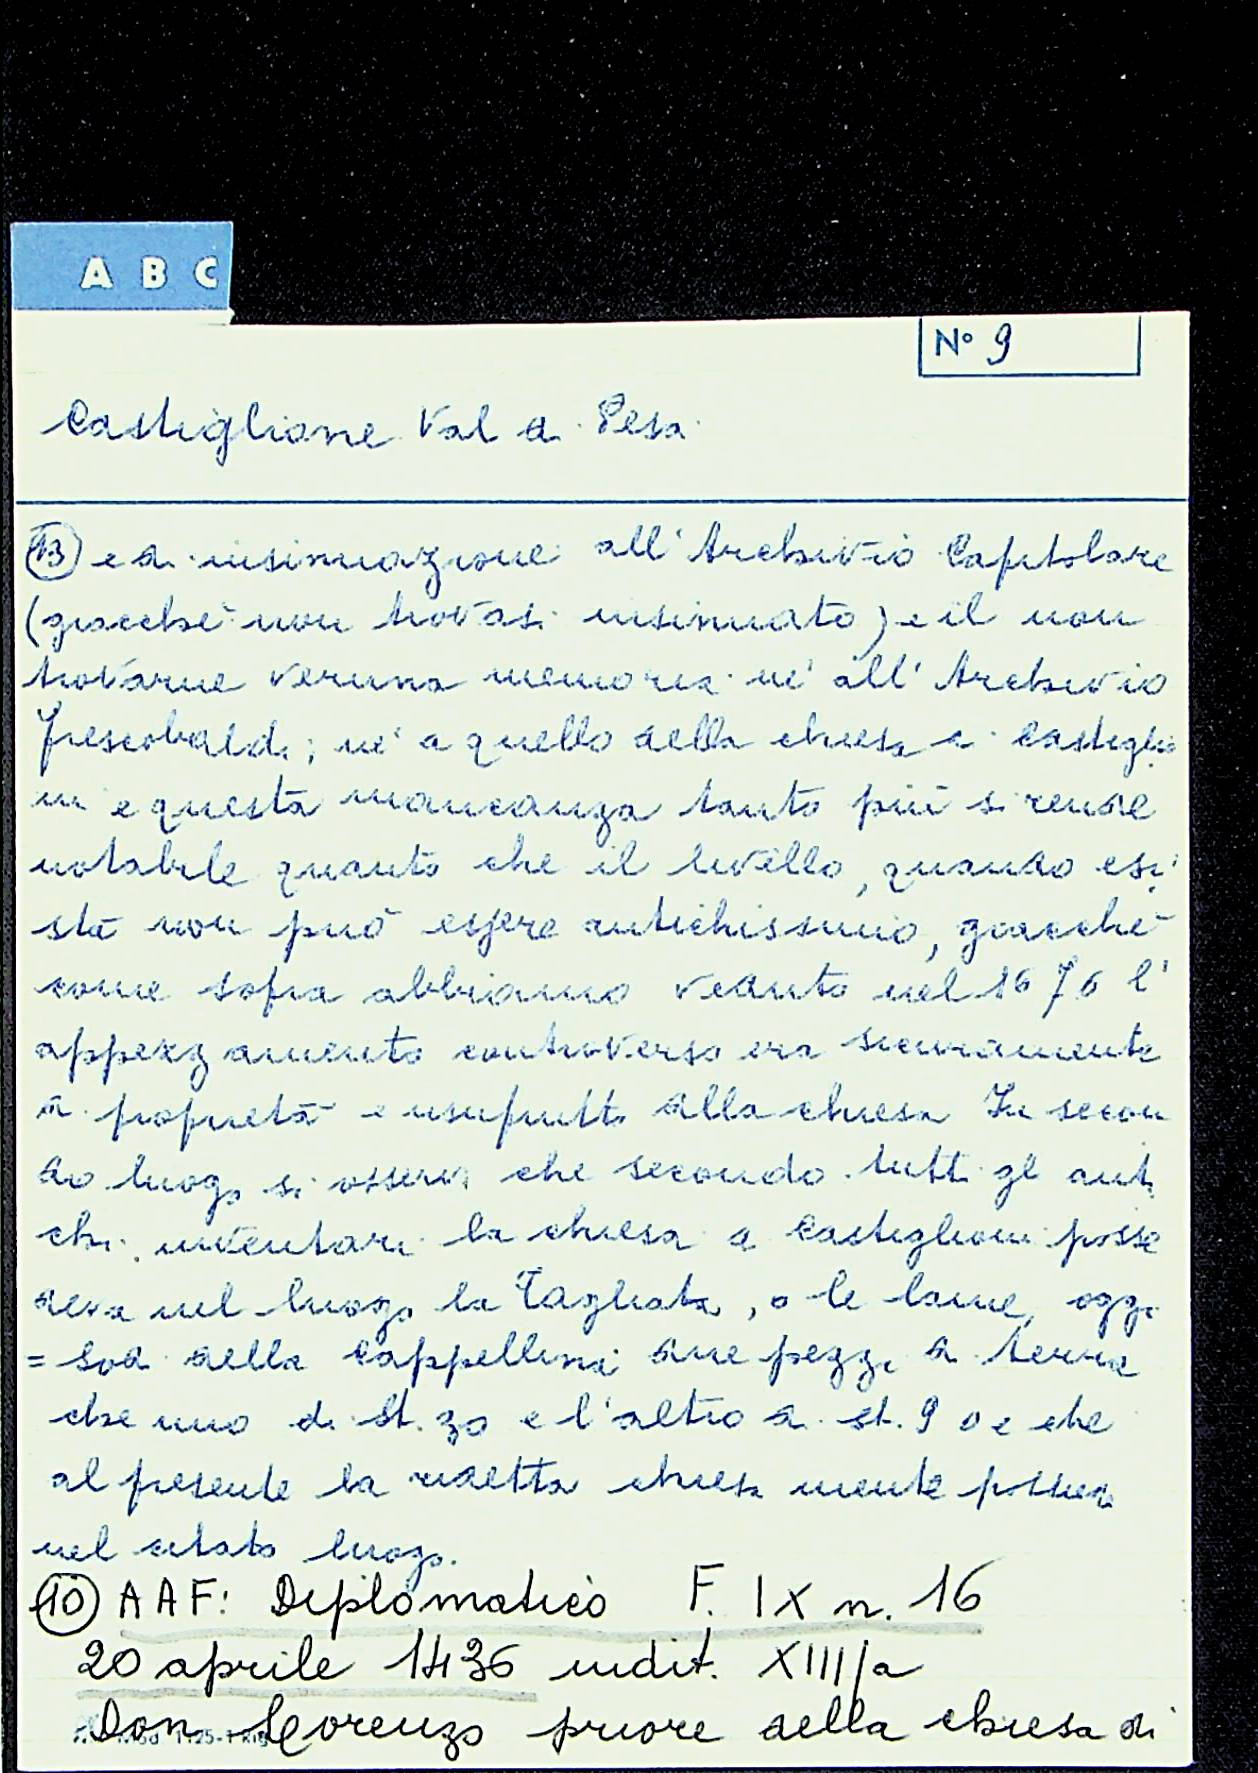 A B C
N° 9
Castiglione Val di Pesa
13 e di insinuazione all'Archivio Capitolare
(giacché non trovasi insinuato) e il non
trovarne veruna memoria né all'Archivio
Frescobaldi; né a quello della chiesa di Castiglio
ni e questa mancanza tanto più si rende
notabile quanto che il livello, quando esi
sta non può essere antichissimo, giacché
come sopra abbiamo veduto nel 1676 l'
appezzamento controverso era sicuramente
di proprietà e usufrutto della chiesa In secon
do luogo si osservi che secondo tutti gli anti
chi inventari la chiesa di Castiglioni posse
deva nel luogo la Tagliata, o le lame, oggi
= Sod della Cappellina due pezzi di terra
che uno di St. 30 e l'altro di st. 9 e che
al presente la chiesa possiede
nel citato luogo.
10 AAF: Diplomatico F. IX n. 16
20 aprile 1436 indit. XIII/a
Don Lorenzo priore della chiesa di